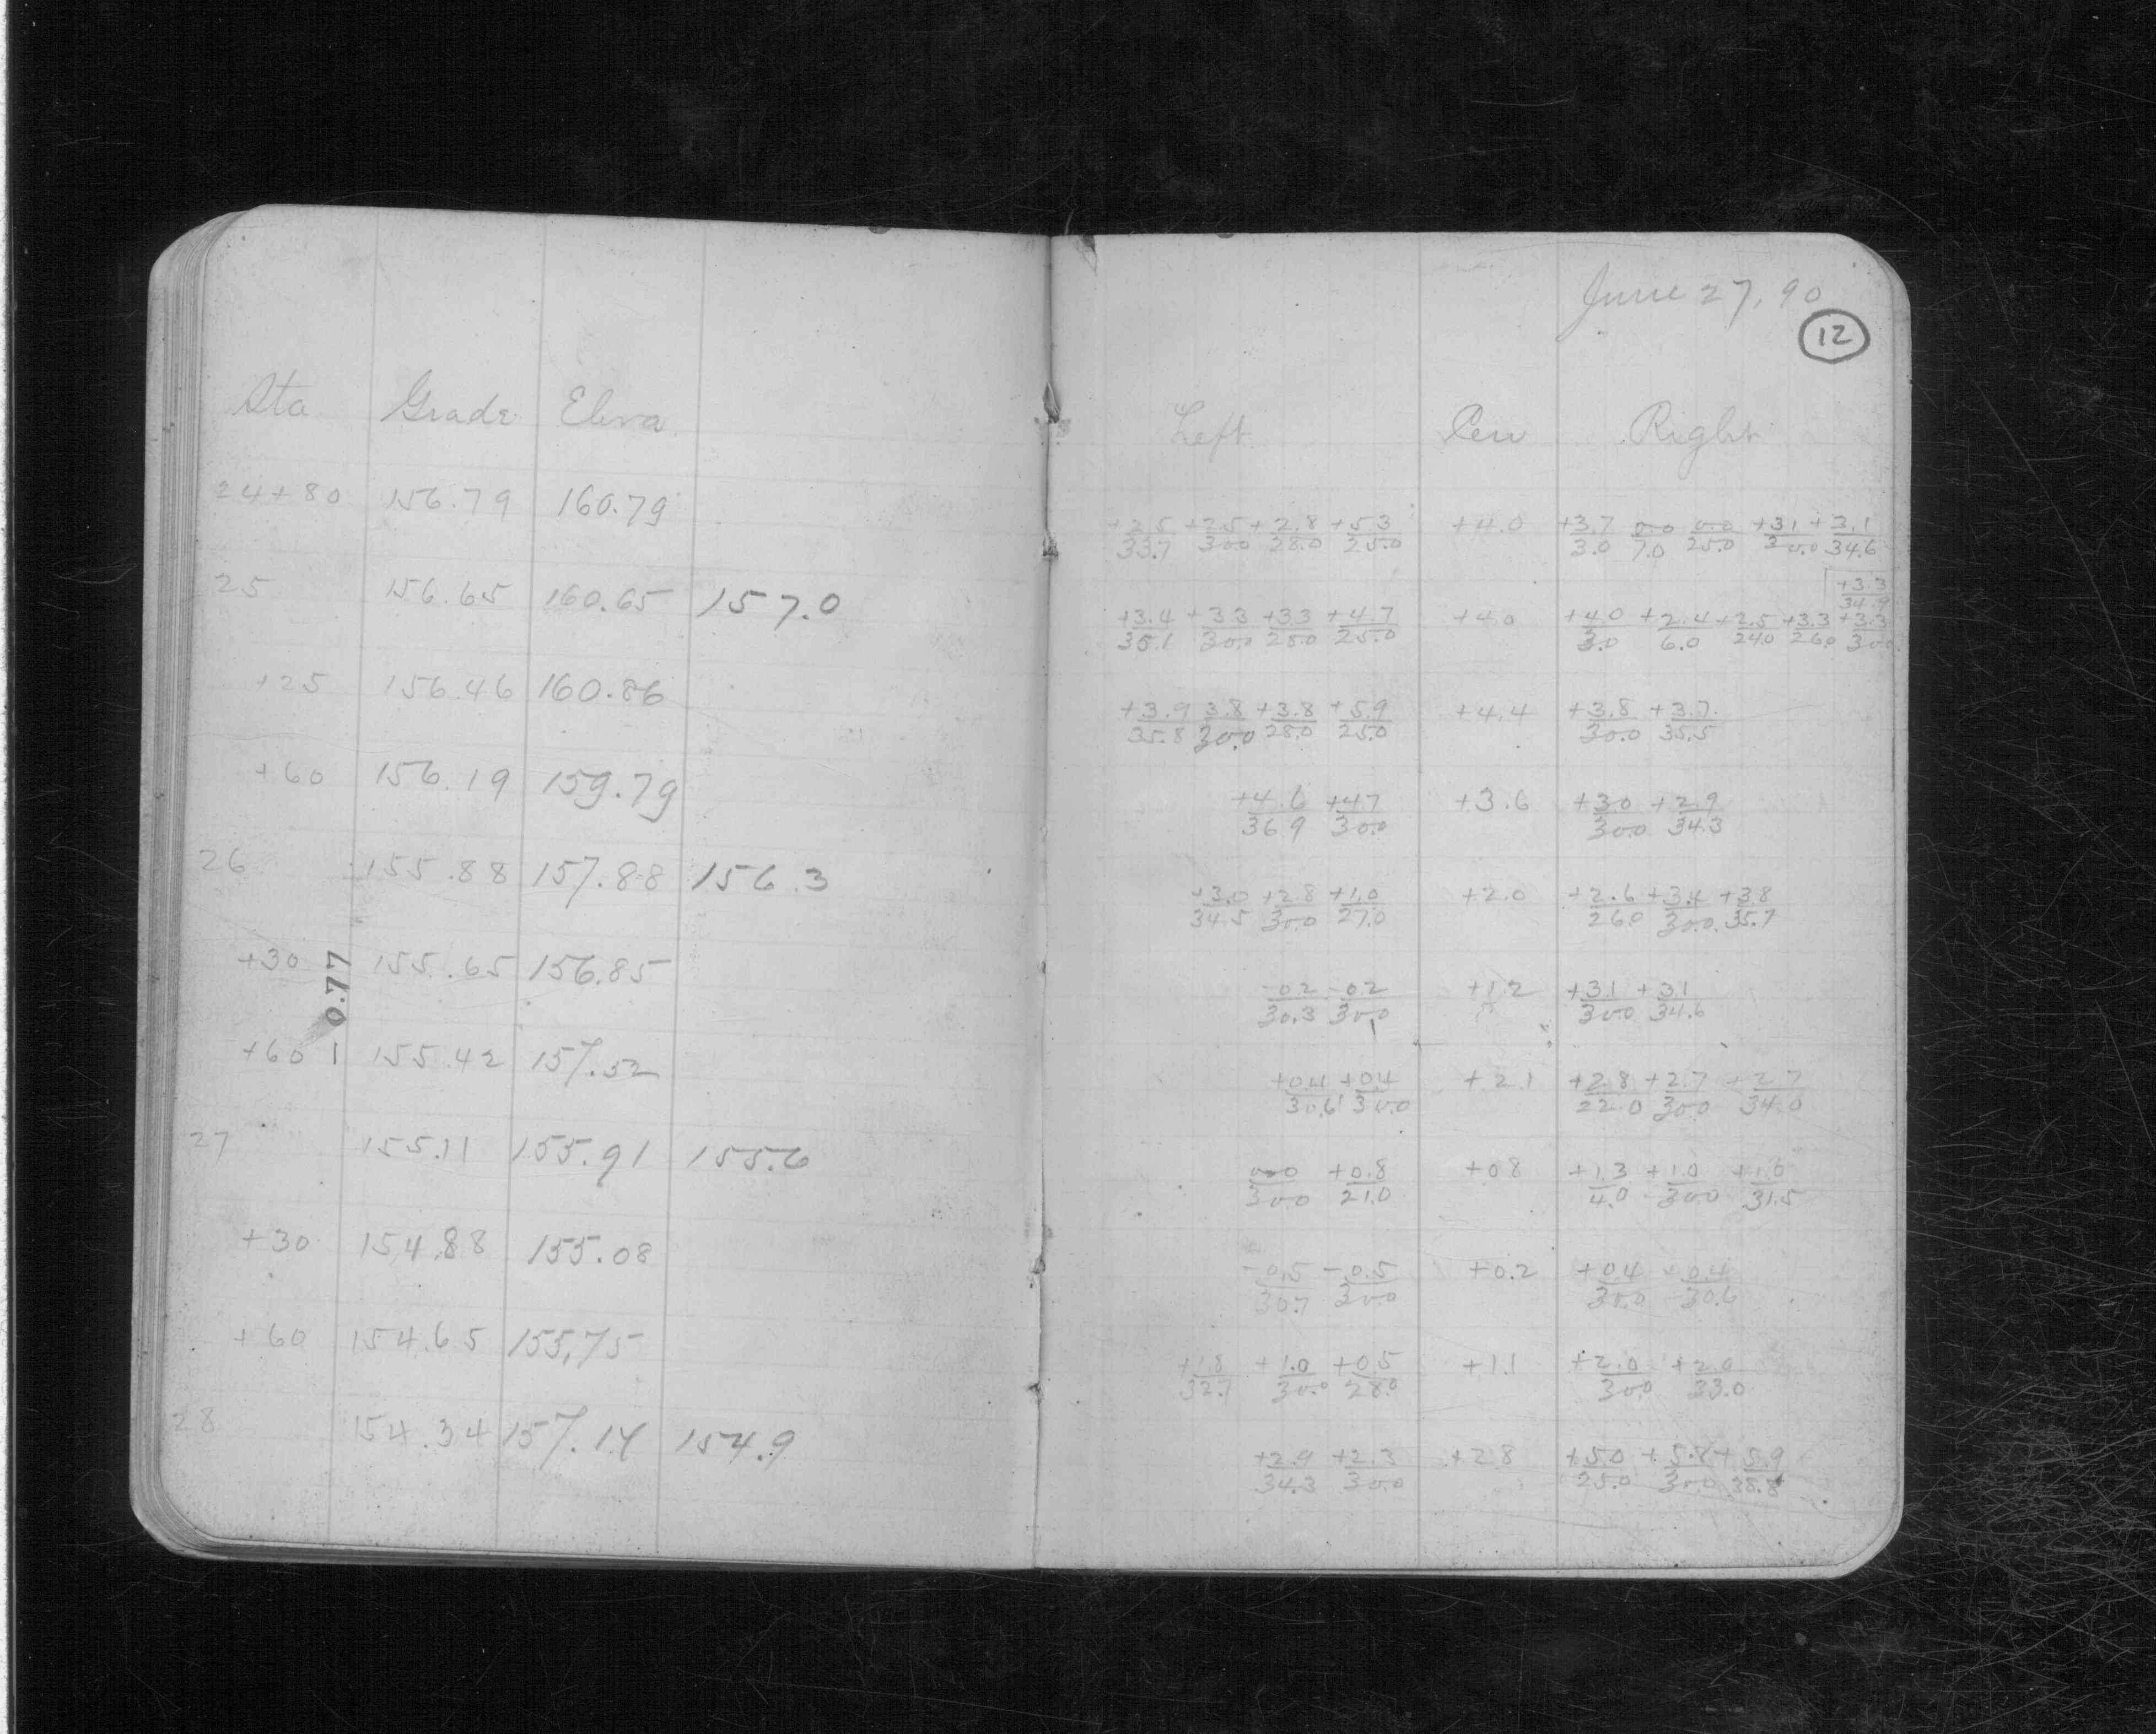 Sta Grade Eleva
24+80 156.79 160.79
25 156.65 160.65 157.0
+25 156.46 160.86
+60 156.19 159.79
26 155.88 157.88 156.3
+30 155.65 156.85
0.77
+60 155.42 157.52
27 155.11 155.91 155.6
+30 154.88 155.08
+60 154.65 155.75
28 154.34 157.14 154.9
June 27, 90
12
Left Cen Right
+2.5 +2.5 +2.8 +5.3 +4.0 +3.7 0.0 0.0 +3.1 +3.1
33.7 30.0 28.0 25.0 3.0 7.0 25.0 30.0 34.6
+3.3
34.9
+3.4 +3.3 +3.3 +4.7 +4.0 +4.0 +2.4 +2.5 +3.3 +3.3
35.1 30.0 28.0 25.0 3.0 6.0 24.0 26.0 30.0
+3.9 3.8 +3.8 +5.9 +4.4 +3.8 +3.7
35.8 30.0 28.0 25.0 30.0 35.5
+4.6 +4.7 +3.6 +3.0 +2.9
36.9 30.0 30.0 34.3
+3.0 +2.8 +1.0 +2.0 +2.6 +3.4 +3.8
34.5 30.0 27.0 26.0 30.0 35.7
-0.2 -0.2 +1.2 +3.1 +3.1
30.3 30.0 30.0 34.6
+0.4 +0.4 +2.1 +2.8 +2.7 +2.7
30.6 30.0 22.0 30.0 34.0
0.0 +0.8 +0.8 +1.3 +1.0 +1.0
30.0 21.0 4.0 30.0 31.5
-0.5 -0.5 +0.2 +0.4 +0.4
30.7 30.0 30.0 30.6
+1.8 +1.0 +0.5 +1.1 +2.0 +2.0
32.7 30.0 28.0 30.0 33.0
+2.9 +2.3 +2.8 +5.0 +5.8 +5.9
34.3 30.0 25.0 30.0 38.8